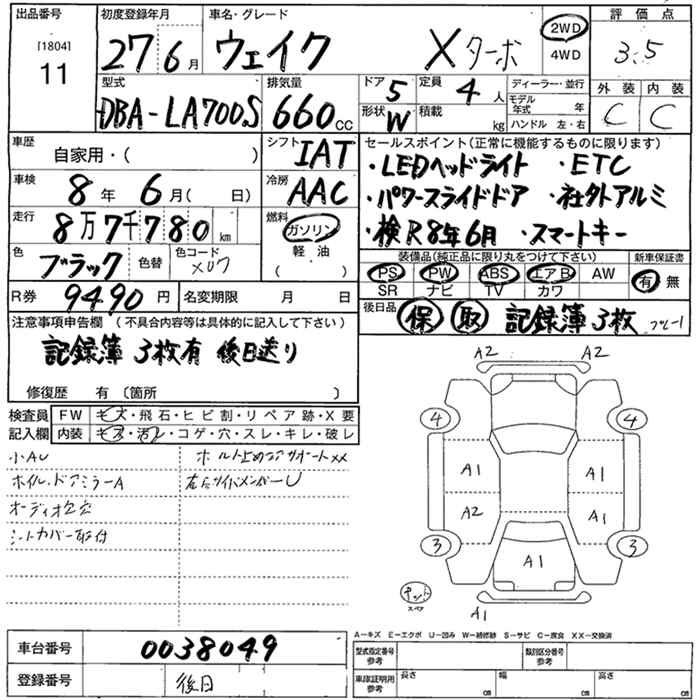 出品番号 初度登録年月 車名・グレード 評価点
[1804] 11 27年6月 ウェイク Xターボ 2WD 4WD 3.5
外装 内装
C C
型式 排気量 ドア 定員 ディーラー・並行
DBA-LA700S 660cc 5 4人 モデル年式 年
形状 積載 ハンドル 左・右
W kg
車歴 シフト セールスポイント(正常に機能するものに限ります)
自家用・( ) IAT ・LEDヘッドライト ・ETC
車検 冷房 ・パワースライドドア ・社外アルミ
8年 6月( 日) AAC ・検R8年6月 ・スマートキー
走行 燃料
8万7千780km ガソリン
軽油
( )
色 色替 色コード
ブラック X07
装備品(純正品に限り丸をつけて下さい) 新車保証書
PS PW ABS エアB AW 有 無
SR ナビ TV カワ
R券 9490円 名変期限 月 日
後日品 保 取 記録簿3枚
注意事項申告欄 (不具合内容等は具体的に記入して下さい)
記録簿 3枚有 後日送り
修復歴 有 〔箇所 〕
検査員 FW キズ・飛石・ヒビ割・リペア跡・X要
記入欄 内装 キズ・汚レ・コゲ・穴・スレ・キレ・破レ
小AU
ホイル、ドアミラーA
オーディオ欠
シートカバー取付
A2 A2
4 4
A1 A1
A2 A1
3 3
A1
キット
スペア
A1
A—キズ E—エクボ U—凹み W—補修跡 S—サビ C—腐食 XX—交換済
車台番号 0038049
登録番号 後日
型式指定番号 参考 類別区分番号 参考
車庫証明用 参考 長さ cm 幅 cm 高さ cm